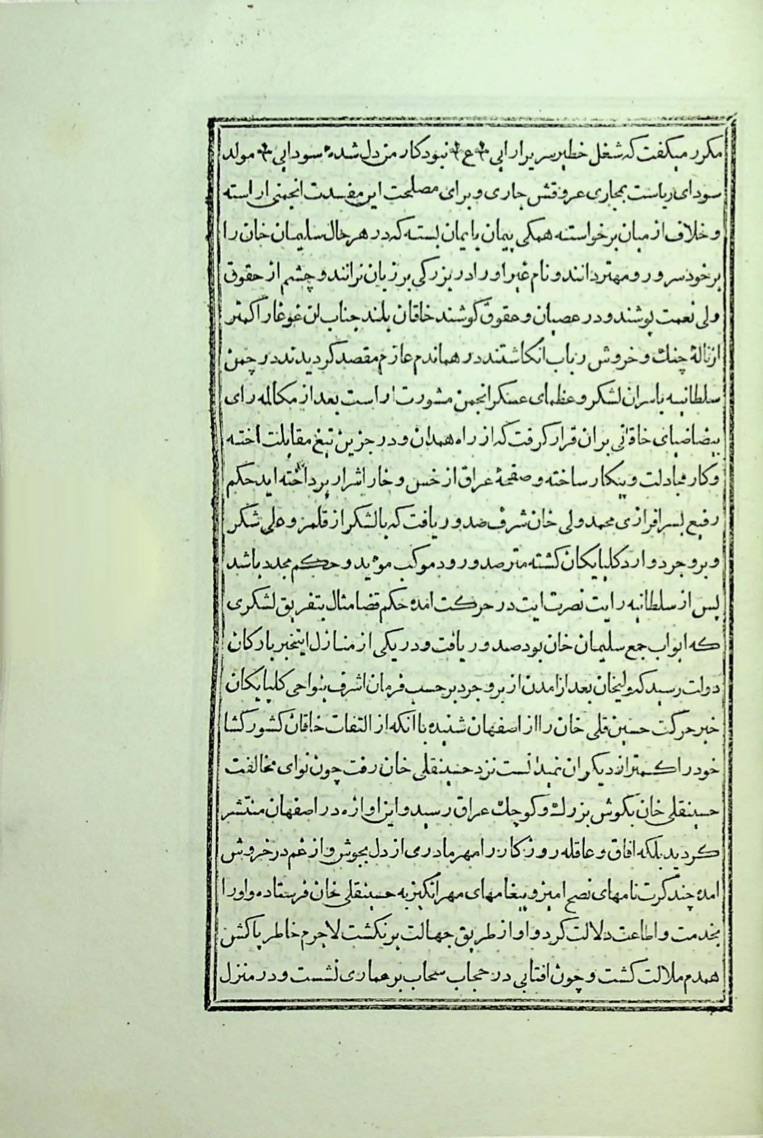 مکرر میکفت که شغل خطیر سریر ارایی ع نبود کار من دل شده سودایی مولد
سودای ریاست بمجاری عروقش جاری و برای مصلحت این مفسدت انجمنی اراسته
و خلاف از میان برخواسته همکی پیمان بایمان بسته که در هر حال سلیمان خان را
بر خود سرور و مهتر دانند و نام غیر او را در بزرکی بر زبان نرانند و چشم از حقوق
ولی نعمت پوشند و در عصیان و عقوق کوشند خاقان بلند جناب این غوغا را کمتر
از نالهٔ چنك و خروش رباب انکاشتند در هماندم عازم مقصد کردیدند در چمن
سلطانیه باسران لشکر و عظمای عسکر انجمن مشورت اراست بعد از مکالمه رای
بیضا ضیای خاقانی بران قرار کرفت که از راه همدان و در جزین تیغ مقابلت اخته
و کار مبادلت و پیکار ساخته و صفحهٔ عراق از خس و خار اشرار پرداخته اید حکم
رفیع بسرافرازی محمد ولی خان شرف صدور یافت که بالشکر از قلمرو علی شکر
و بروجرد وارد کلپایکان کشته مترصد ورود موکب موید و حکم مجدد باشد
پس از سلطانیه رایت نصرت ایت در حرکت امده حکم قضا مثال بتفریق لشکری
که ابواب جمع سلیمان خان بود صدور یافت و در یکی از منازل اینخبر بارکان
دولت رسید که ولیخان بعد از امدن از بروجرد بر حسب فرمان اشرف بنواحی کلپایکان
خبر حرکت حسین قلی خان را از اصفهان شنیده با انکه از التفات خاقان کشور کشا
خود را کمتر از دیکران نمیدانست نزد حسینقلی خان رفت چون نوای مخالفت
حسینقلی خان بکوش بزرك و کوچك عراق رسید و این اوازه در اصفهان منتشر
کردید بلکه افاق و عاقله روزکار را مهر مادری از دل بجوش و از غم در خروش
امده چند کرت نامهای نصح امیز و پیغامهای مهر انکیز به حسینقلی خان فرستاده و او را
بخدمت و اطاعت دلالت کرد و او از طریق جهالت برنکشت لاجرم خاطر پاکش
همدم ملالت کشت و چون افتابی در حجاب سحاب بر عماری نشست و در منزل